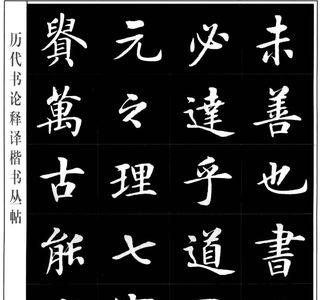 未善也書
必達乎道
元之理七
貴萬古能
历代书论释译楷书丛帖